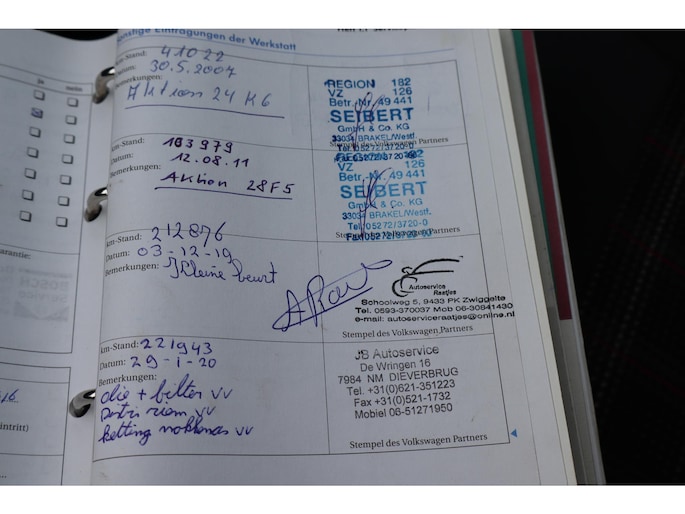 Sonstige Eintragungen der Werkstatt
Ja
nein
km-Stand: 41022
Datum: 30.5.2007
Bemerkungen:
Aktion 24 H6
REGION 182
VZ 126
Betr.-Nr. 49 441
SEIBERT
GmbH & Co. KG
33034 BRAKEL/Westf.
Tel. 05272/3720-0
Stempel des Volkswagen Partners
km-Stand: 163979
Datum: 12.08.11
Bemerkungen:
Aktion 28F5
REGION 182
VZ 126
Betr.-Nr. 49 441
SEIBERT
GmbH & Co. KG
33034 BRAKEL/Westf.
Tel. 05272/3720-0
Fax 05272/3720-90
Stempel des Volkswagen Partners
km-Stand: 212876
Datum: 03-12-19
Bemerkungen: Kleine beurt
Autoservice
Raatjes
Schoolweg 5, 9433 PK Zwiggelte
Tel. 0593-370037 Mob 06-30841430
e-mail: autoserviceraatjes@online.nl
Stempel des Volkswagen Partners
km-Stand: 221943
Datum: 29-1-20
Bemerkungen:
olie + filter vv
vv
ketting vv
JB Autoservice
De Wringen 16
7984 NM DIEVERBRUG
Tel. +31(0)621-351223
Fax +31(0)521-1732
Mobiel 06-51271950
Stempel des Volkswagen Partners